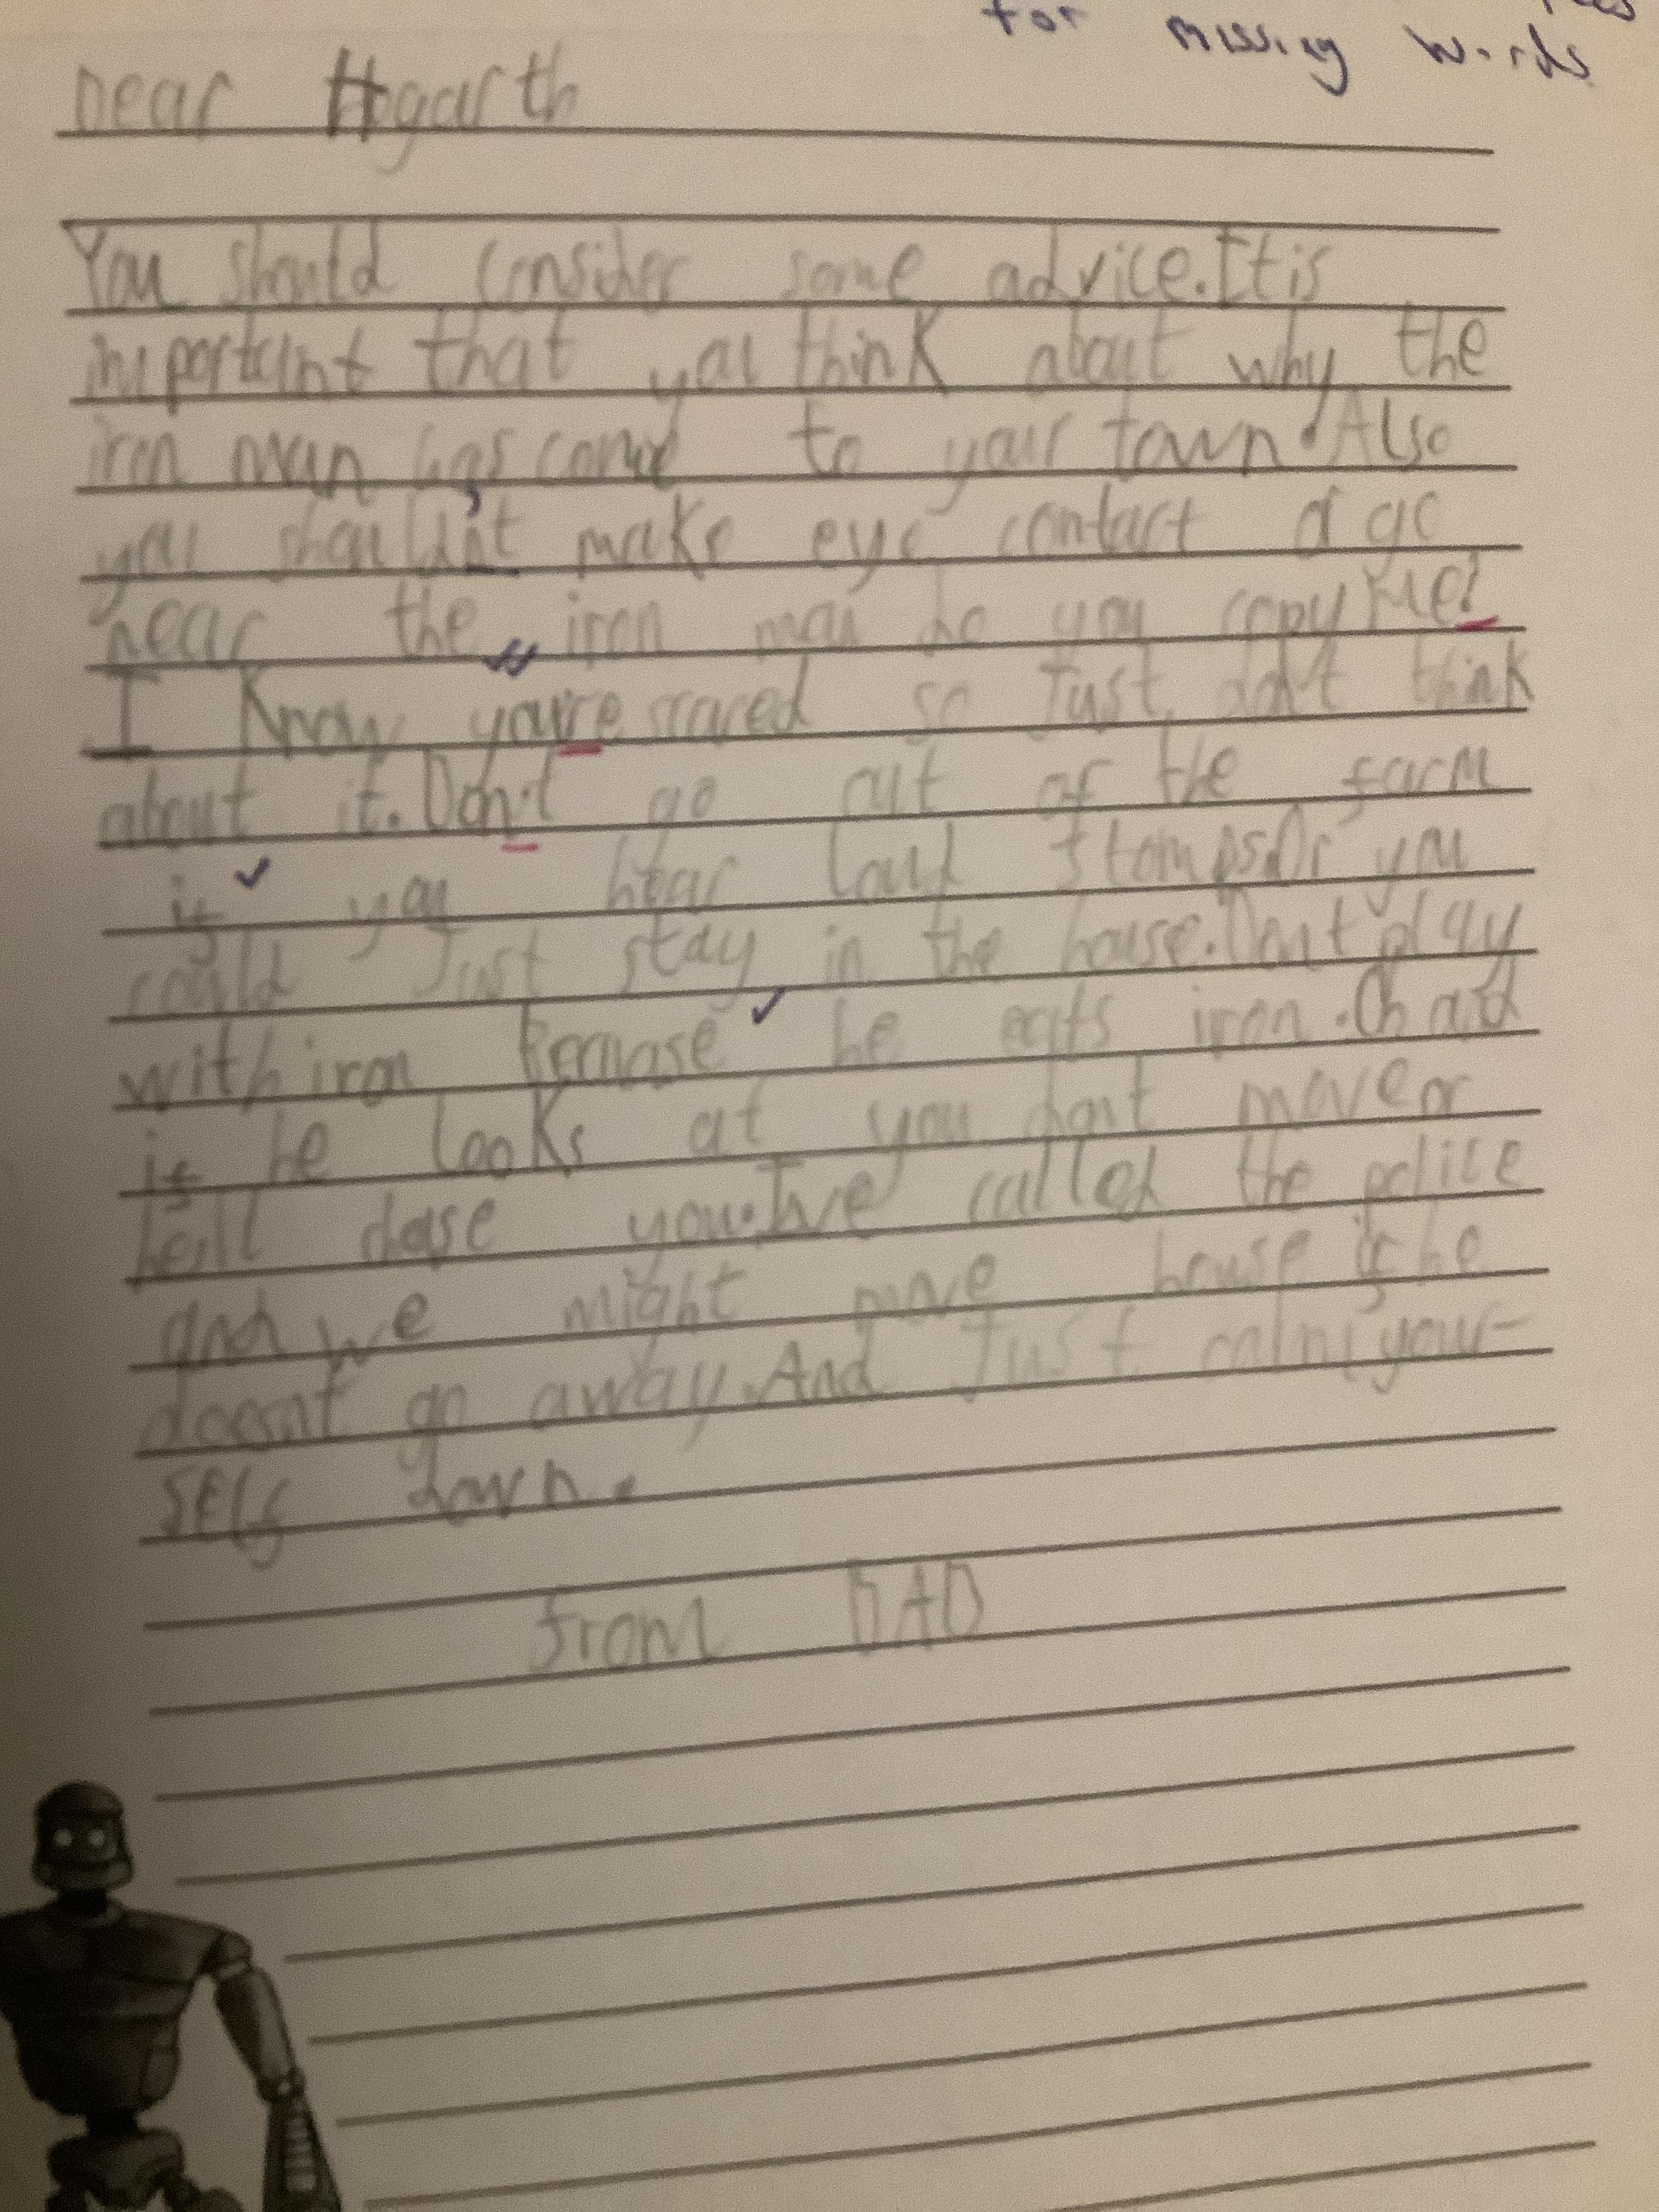 for missing words
Dear Hogarth
You should consider some advice. It is
important that you think about why the
iron man has come to your town. Also
you should'nt make eye contact or go
near the iron man do you copy Me?
I Know you're scared so Just don't think
about it. Don't go out of the farm
if you hear loud stomps. Or you
could Just stay in the house. Dont play
with iron Becnase he eats iron. Oh and
if he looks at you dont move or
he,ll chase you. I've called the police
and we might move house if he
doesnt go away. And Just calm your-
self down.
from DAD